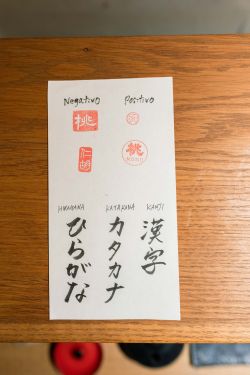 Negativo Positivo
桃
桃
MOMO
HIRAGANA KATAKANA KANJI
ひらがな カタカナ 漢字